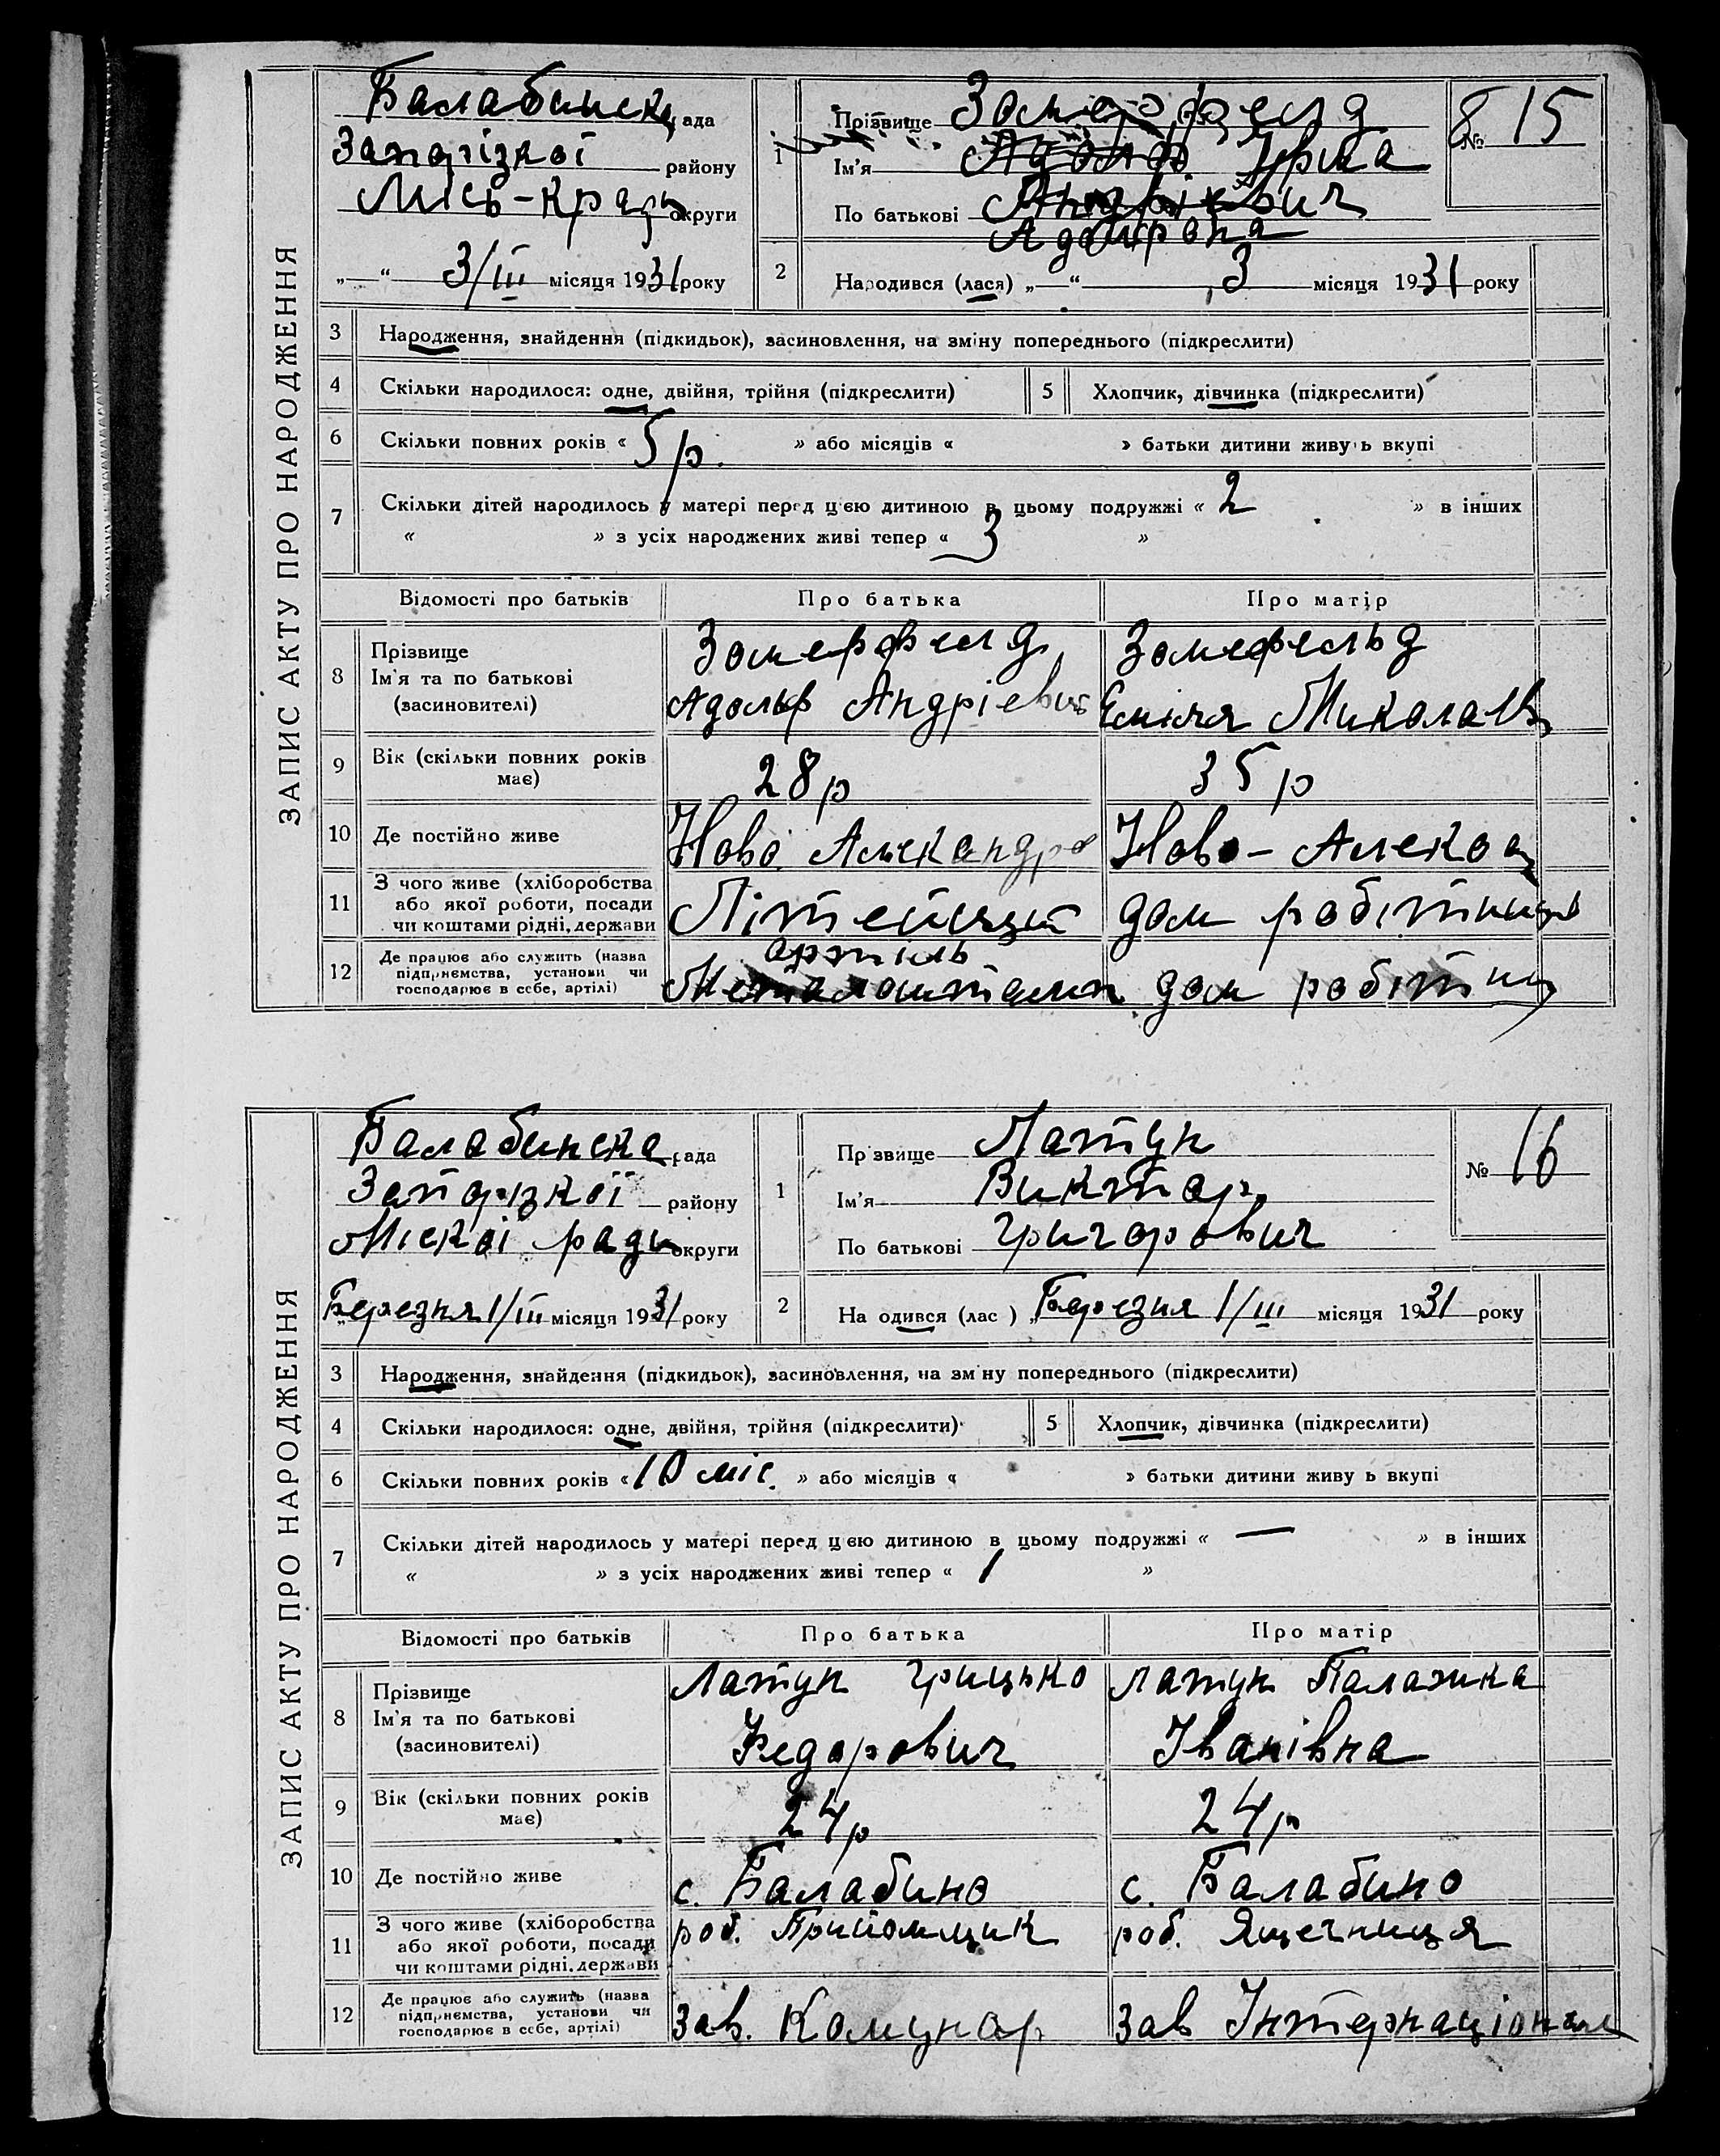 ЗАПИС АКТУ ПРО НАРОДЖЕННЯ
Балабинска рада
Запорізкої району
Місь-кради округи
„ “ 3/III місяця 1931 року
1 Прізвище
Ім'я Адольф Ірма
По батькові
Адольфовна
№ 15
2 Народився (лася) „ “ 3 місяця 1931 року
3 Народження, знайдення (підкидьок), засиновлення, на зміну попереднього (підкреслити)
4 Скільки народилося: одне, двійня, трійня (підкреслити) 5 Хлопчик, дівчинка (підкреслити)
6 Скільки повних років « 5 р. » або місяців « » батьки дитини живуть вкупі
7 Скільки дітей народилось у матері перед цією дитиною в цьому подружжі « 2 » в інших
« » з усіх народжених живі тепер « 3 »
Відомості про батьків Про батька Про матір
8 Прізвище Ім'я та по батькові (засновителі)
Зомерфелд Зомефельд
Адольф Андрієвич Емілія Миколаів
9 Вік (скільки повних років має) 28 р 35 р
10 Де постійно живе Ново Александро Ново-Алекса
11 З чого живе (хліборобства або якої роботи, посади чи коштами рідні, держави
Літейщик дом робітниця
12 Де працює або служить (назва підприємства, установи чи господарює в себе, артілі)
артіль
Металоштамп дом робітниц
ЗАПИС АКТУ ПРО НАРОДЖЕННЯ
Балабинска рада
Запорізкої району
Міскої ради округи
Березня 1/III місяця 1931 року
1 Пр звище Латун
Ім'я Виктор
По батькові Григорович
№ 16
2 На одився (лас ) „ Березня 1/III місяця 1931 року
3 Народження, знайдення (підкидьок), засиновлення, на зм ну попереднього (підкреслити)
4 Скільки народилося: одне, двійня, трійня (підкреслити) 5 Хлопчик, дівчинка (підкреслити)
6 Скільки повних років « 10 міс. » або місяців « » батьки дитини живу ь вкупі
7 Скільки дітей народилось у матері перед цією дитиною в цьому подружжі « — » в інших
« » з усіх народжених живі тепер « 1 »
Відомості про батьків Про батька Про матір
8 Прізвище Ім'я та по батькові (засиновителі)
Латун Грицько Латун Палажка
Федорович Іванівна
9 Вік (скільки повних років має) 24 р 24 р
10 Де постійно живе с. Балабино с. Балабино
11 З чого живе (хліборобства або якої роботи, посади чи коштами рідні, держави
роб. Прийомщик роб. Ящечниця
12 Де працює або служить (назва підприємства, установи чи господарює в себе, артілі)
Зав. Комунар Зав Інтернаціонал